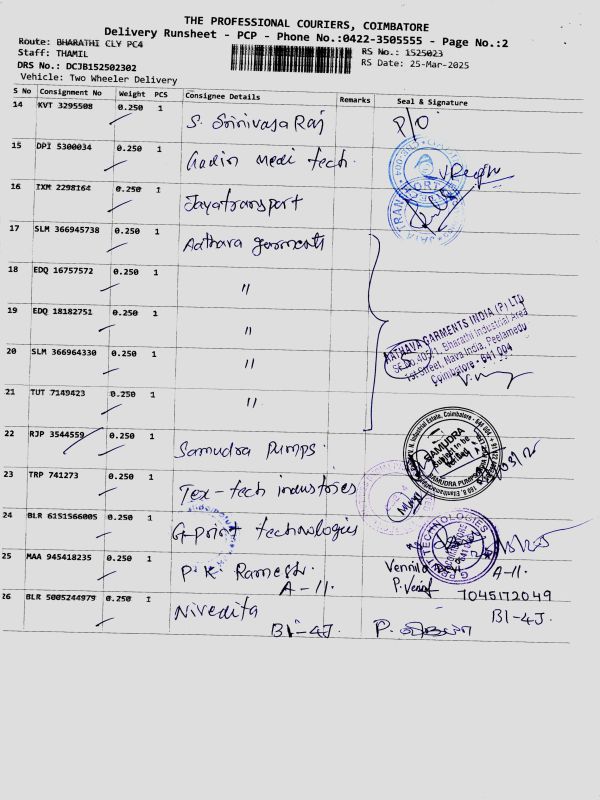 THE PROFESSIONAL COURIERS, COIMBATORE
Delivery Runsheet - PCP - Phone No.:0422-3505555 - Page No.:2
Route: BHARATHI CLY PC4
Staff: THAMIL
DRS No.: DCJB152502302
Vehicle: Two Wheeler Delivery
RS No.: 1525023
RS Date: 25-Mar-2025
S No Consignment No Weight PCS Consignee Details Remarks Seal & Signature
14 KVT 3295508 0.250 1 S. Srinivasa Raj P/O
15 DPI 5300034 0.250 1 Medi tech.
16 IXM 2298164 0.250 1 Jayatransport
17 SLM 366945738 0.250 1 Aathava garments
18 EDQ 16757572 0.250 1 "
19 EDQ 18182751 0.250 1 "
20 SLM 366964330 0.250 1 "
21 TUT 7149423 0.250 1 "
AATHAVA GARMENTS INDIA (P) LTD
SF.No.405/1, Bharathi Industrial Area
1st Street, Nava India, Peelamedu
Coimbatore - 641 004
22 RJP 3544559 0.250 1 Samudra Pumps.
SAMUDRA
23 TRP 741273 0.250 1 Tex-tech industries
24 BLR 6151566005 0.250 1 G-print technologies
25 MAA 945418235 0.250 1 P. K. Ramesh.
A-11.
A-11.
7045172049
26 BLR 5005244979 0.250 1 Nivedita
B1-4J.
B1-4J.